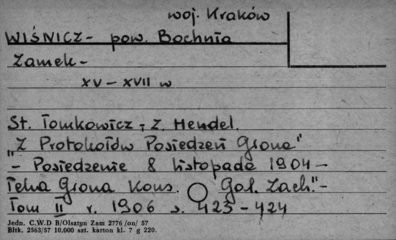 woj. Kraków
WIŚNICZ - pow. Bochnia
Zamek -
XV - XVII w
St. Tomkowicz, - Z. Hendel.
"Z Protokołów Posiedzeń Grona"
- Posiedzenie 8 listopada 1904 -
Teka Grona Kons. Gal. Zach." -
Tom II r. 1906 s. 423 - 424
Jedn. C.W.D B/Olsztyn Zam 2776 /on/ 57
Bltk. 2563/57 10.000 szt. karton kl. 7 g 220.